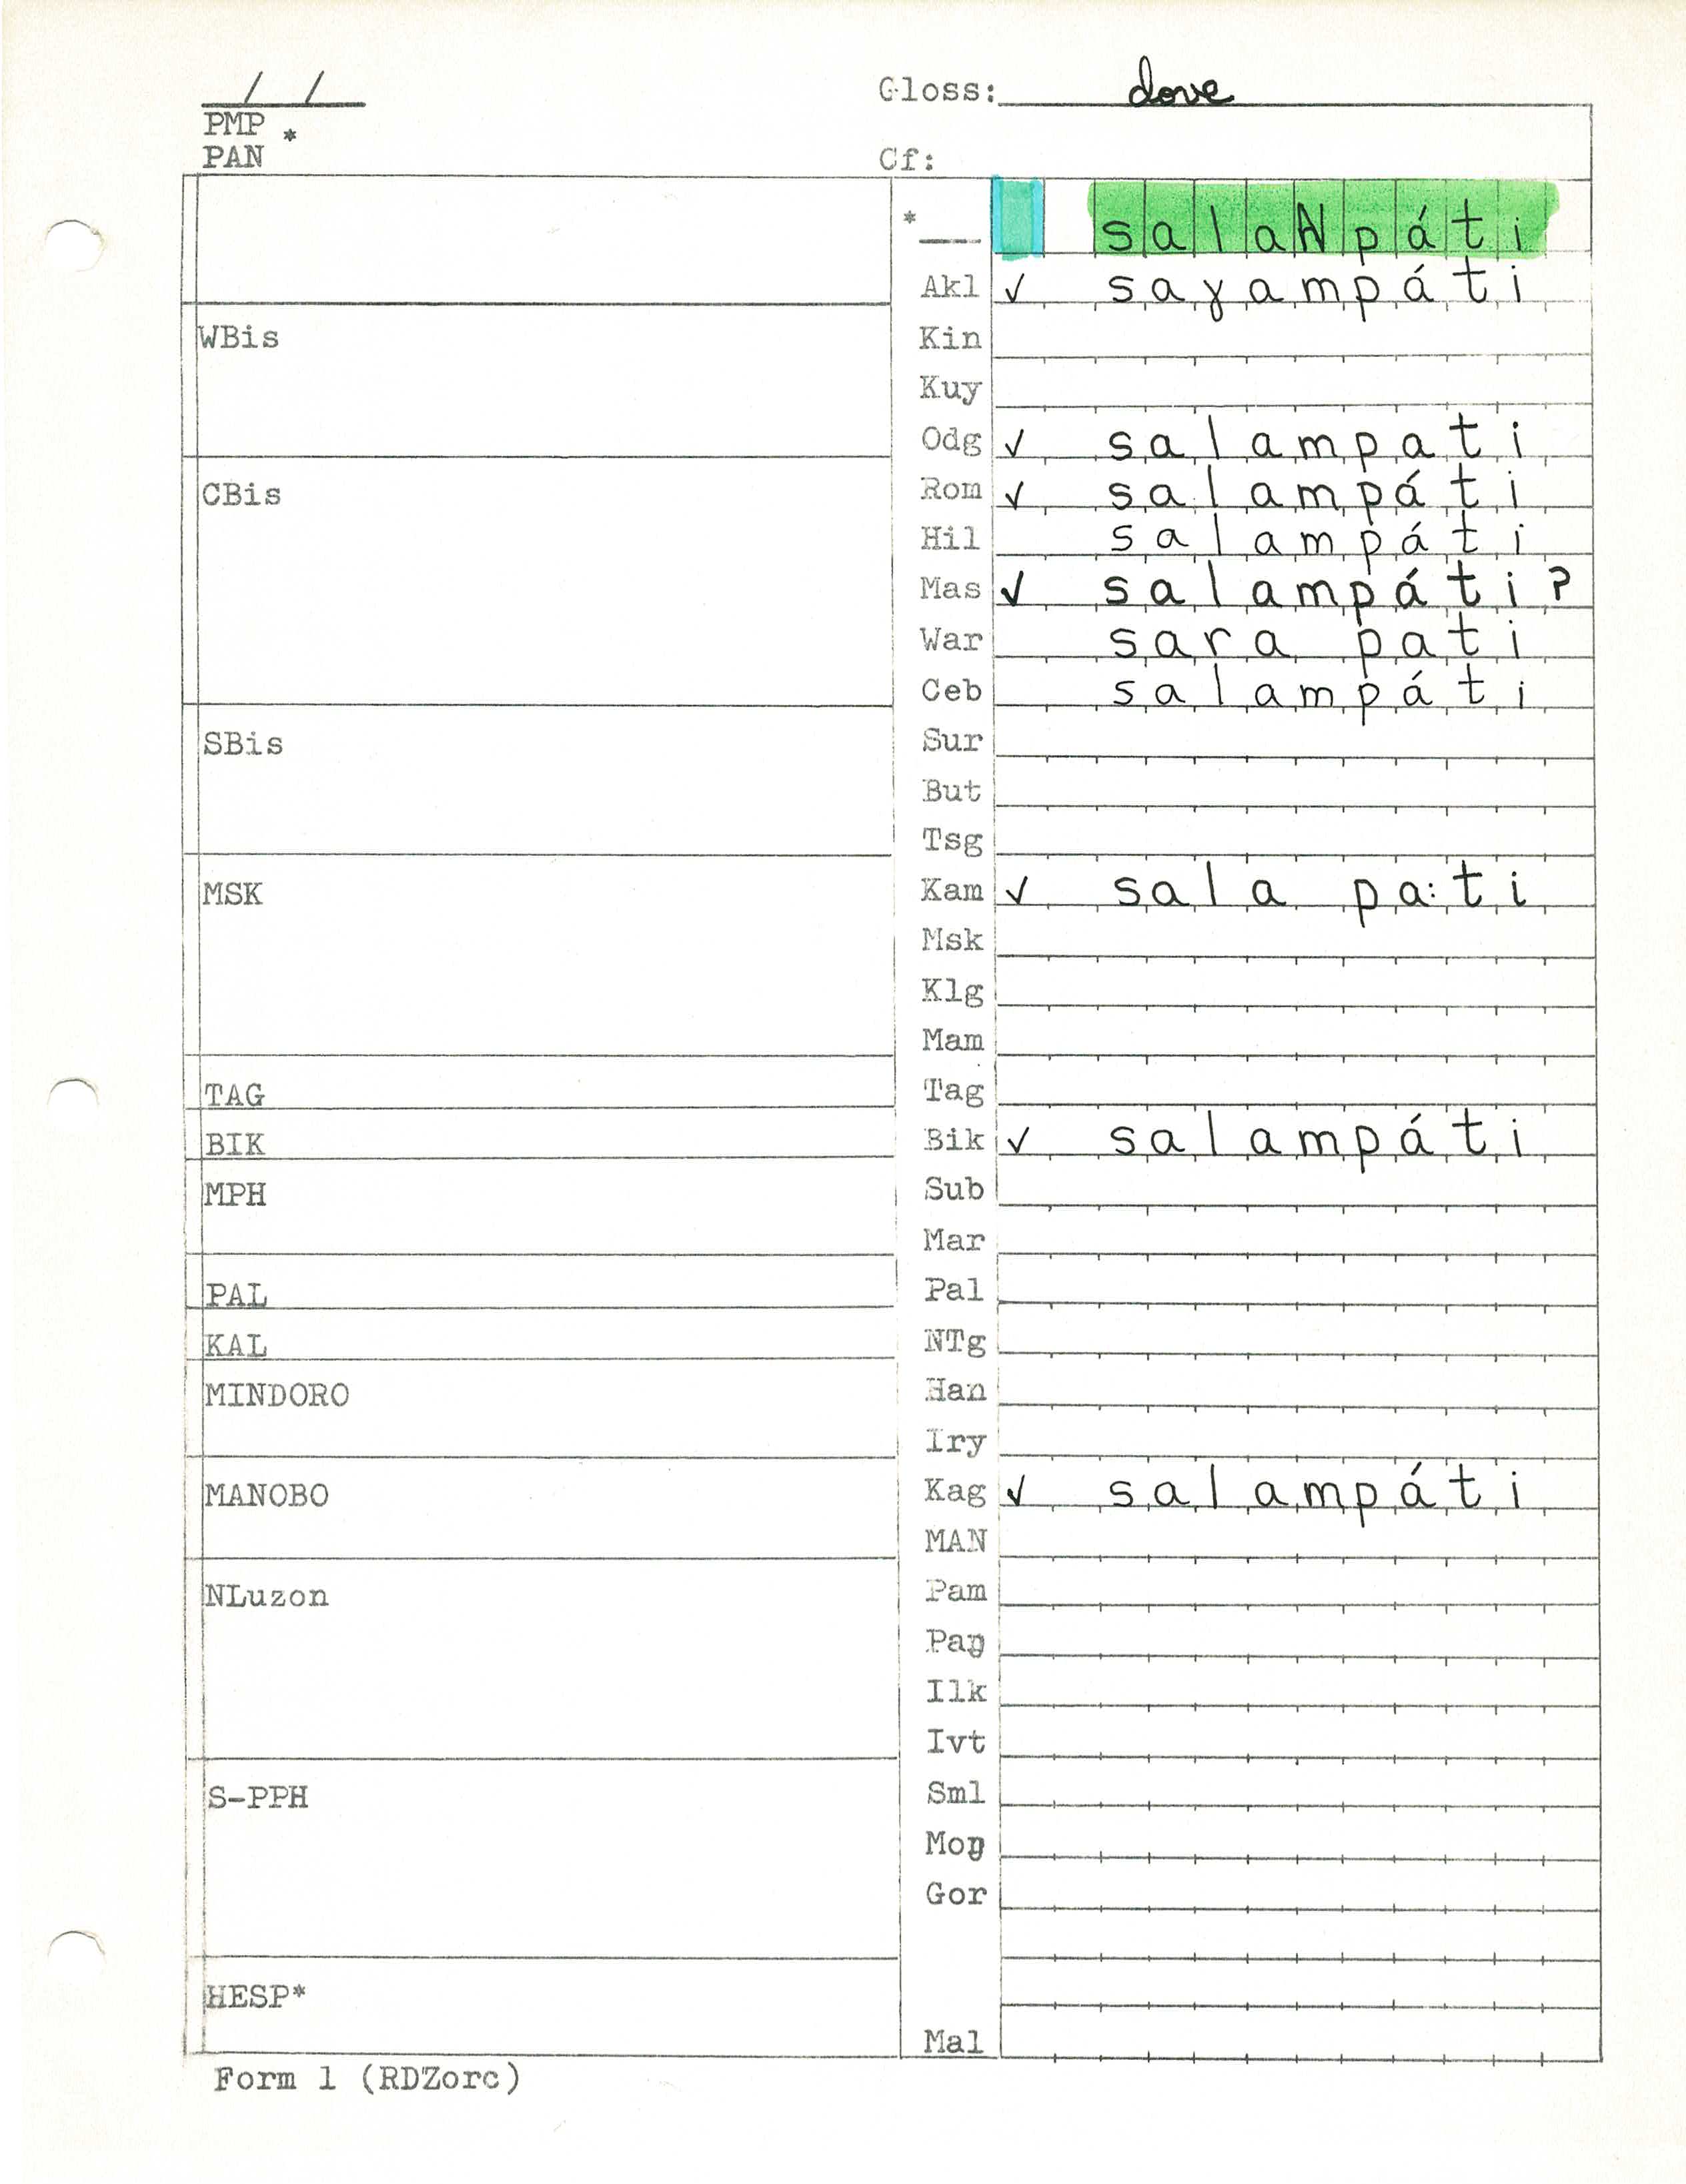 / /
Gloss: dove
PMP *
PAN
Cf:
* salaNpáti
Akl ✓ saɣampáti
WBis
Kin
Kuy
Odg ✓ salampati
CBis
Rom ✓ salampáti
Hil salampáti
Mas ✓ salampáti?
War sara pati
Ceb salampáti
SBis
Sur
But
Tsg
MSK
Kam ✓ sala pa:ti
Msk
Klg
Mam
TAG
Tag
BIK
Bik ✓ salampáti
MPH
Sub
Mar
PAL
Pal
KAL
NTg
MINDORO
Han
Iry
MANOBO
Kag ✓ salampáti
MAN
NLuzon
Pam
Paŋ
Ilk
Ivt
S-PPH
Sml
Moŋ
Gor
HESP*
Mal
Form 1 (RDZorc)